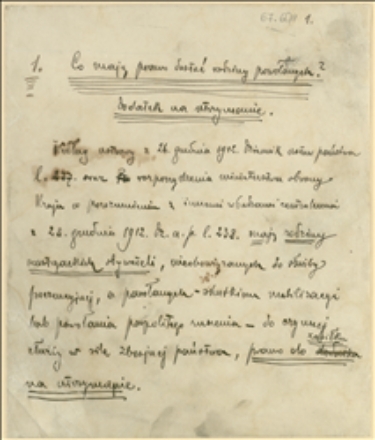 1.
1. Co mają prawo dostać rodziny powołanych?
Dodatek na utrzymanie.
Według ustawy z 26 grudnia 1912. Dziennik ustaw państwa
l. 237. oraz rozporządzenia ministerstwa obrony
Kraju w porozumieniu z innemi władzami centralnemi
z 28. grudnia 1912. Dz. u. p. l. 238. mają rodziny
, nieobowiązanych do służby
prezencyjnej, a powołanych skutkiem mobilizacji
lub powołania pospolitego ruszenia - do czynnej
służby w sile zbrojnej państwa, prawo do zasiłku
na utrzymanie.